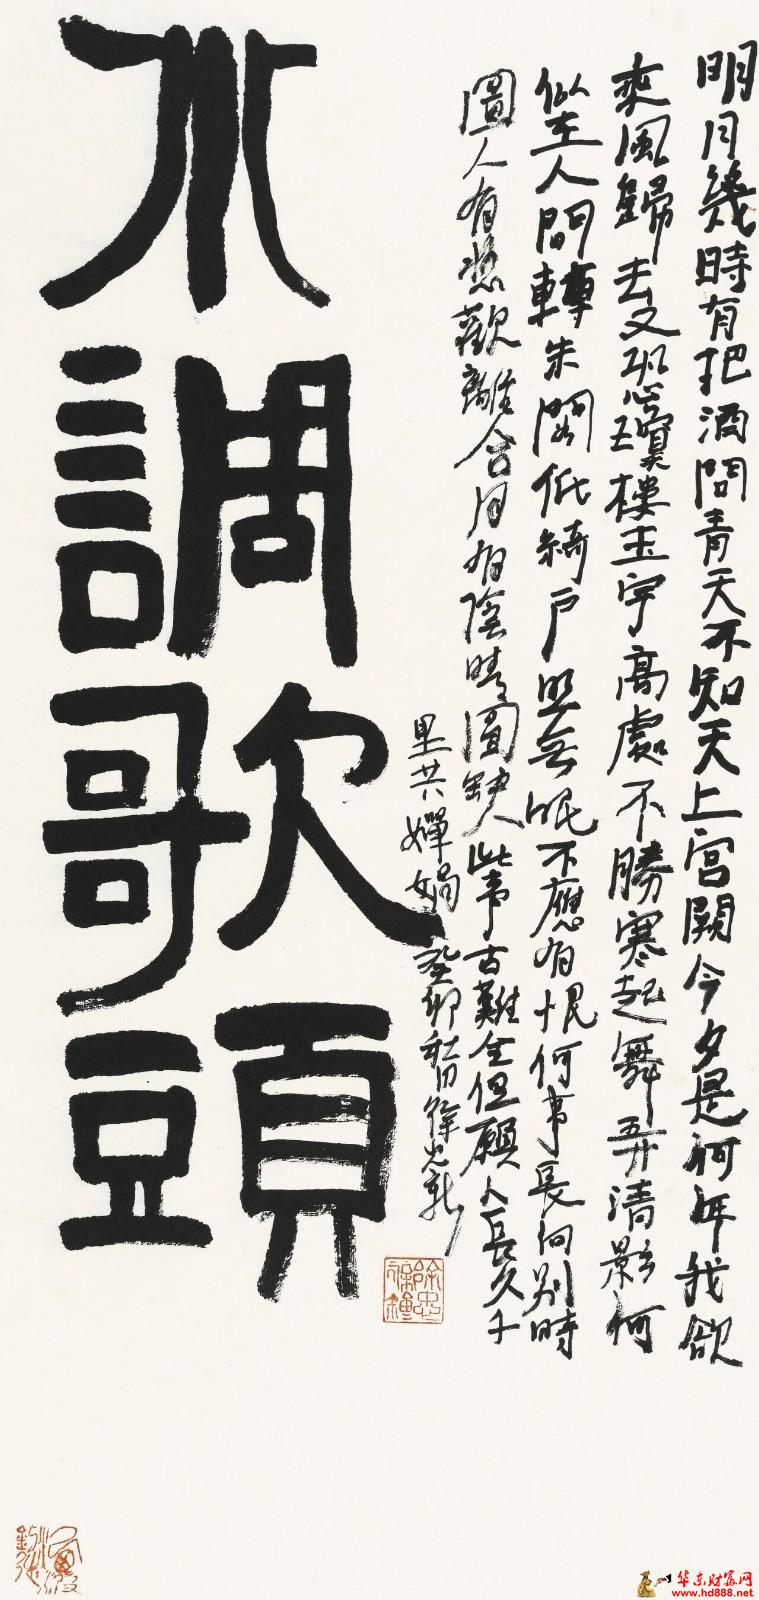 明月幾時有把酒問青天不知天上宫闕今夕是何年我欲
乘風歸去又恐瓊樓玉宇高處不勝寒起舞弄清影何
似在人間轉朱閣低綺户照無眠不應有恨何事長向别時
圓人有悲歡離合月有陰晴圓缺此事古難全但願人長久千
里共嬋娟 癸卯秋日徐
水調歌頭
华东财富网
www.hd888.net